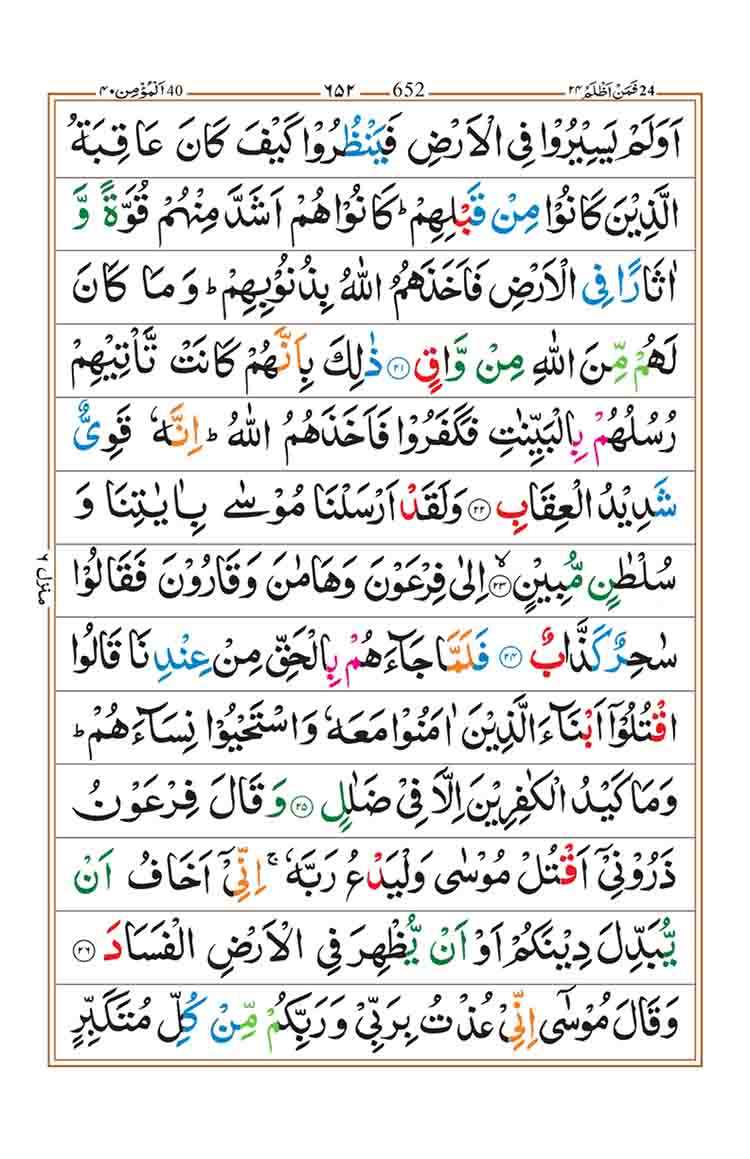 24 فَمَنْ اَظْلَمُ ٢٤ 652 ٦٥٢ 40 اَلْمُؤْمِن ٤٠
اَوَلَمْ يَسِيْرُوْا فِى الْاَرْضِ فَيَنْظُرُوْا كَيْفَ كَانَ عَاقِبَةُ
الَّذِيْنَ كَانُوْا مِنْ قَبْلِهِمْ ؕ كَانُوْا هُمْ اَشَدَّ مِنْهُمْ قُوَّةً وَّ
اٰثَارًا فِى الْاَرْضِ فَاَخَذَهُمُ اللّٰهُ بِذُنُوْبِهِمْ ؕ وَمَا كَانَ
لَهُمْ مِّنَ اللّٰهِ مِنْ وَّاقٍ ٢١ ذٰلِكَ بِاَنَّهُمْ كَانَتْ تَّاْتِيْهِمْ
رُسُلُهُمْ بِالْبَيِّنٰتِ فَكَفَرُوْا فَاَخَذَهُمُ اللّٰهُ ؕ اِنَّهٗ قَوِىٌّ
شَدِيْدُ الْعِقَابِ ٢٢ وَلَقَدْ اَرْسَلْنَا مُوْسٰى بِاٰيٰتِنَا وَ
سُلْطٰنٍ مُّبِيْنٍ ۙ ٢٣ اِلٰى فِرْعَوْنَ وَهَامٰنَ وَقَارُوْنَ فَقَالُوْا
سٰحِرٌ كَذَّابٌ ٢٤ فَلَمَّا جَآءَهُمْ بِالْحَقِّ مِنْ عِنْدِنَا قَالُوا
اقْتُلُوْۤا اَبْنَآءَ الَّذِيْنَ اٰمَنُوْا مَعَهٗ وَاسْتَحْيُوْا نِسَآءَهُمْ ؕ
وَمَا كَيْدُ الْكٰفِرِيْنَ اِلَّا فِىْ ضَلٰلٍ ٢٥ وَقَالَ فِرْعَوْنُ
ذَرُوْنِىْۤ اَقْتُلْ مُوْسٰى وَلْيَدْعُ رَبَّهٗ ۚ اِنِّىْۤ اَخَافُ اَنْ
يُّبَدِّلَ دِيْنَكُمْ اَوْ اَنْ يُّظْهِرَ فِى الْاَرْضِ الْفَسَادَ ٢٦
وَقَالَ مُوْسٰۤى اِنِّىْ عُذْتُ بِرَبِّىْ وَرَبِّكُمْ مِّنْ كُلِّ مُتَكَبِّرٍ
منزل ٦